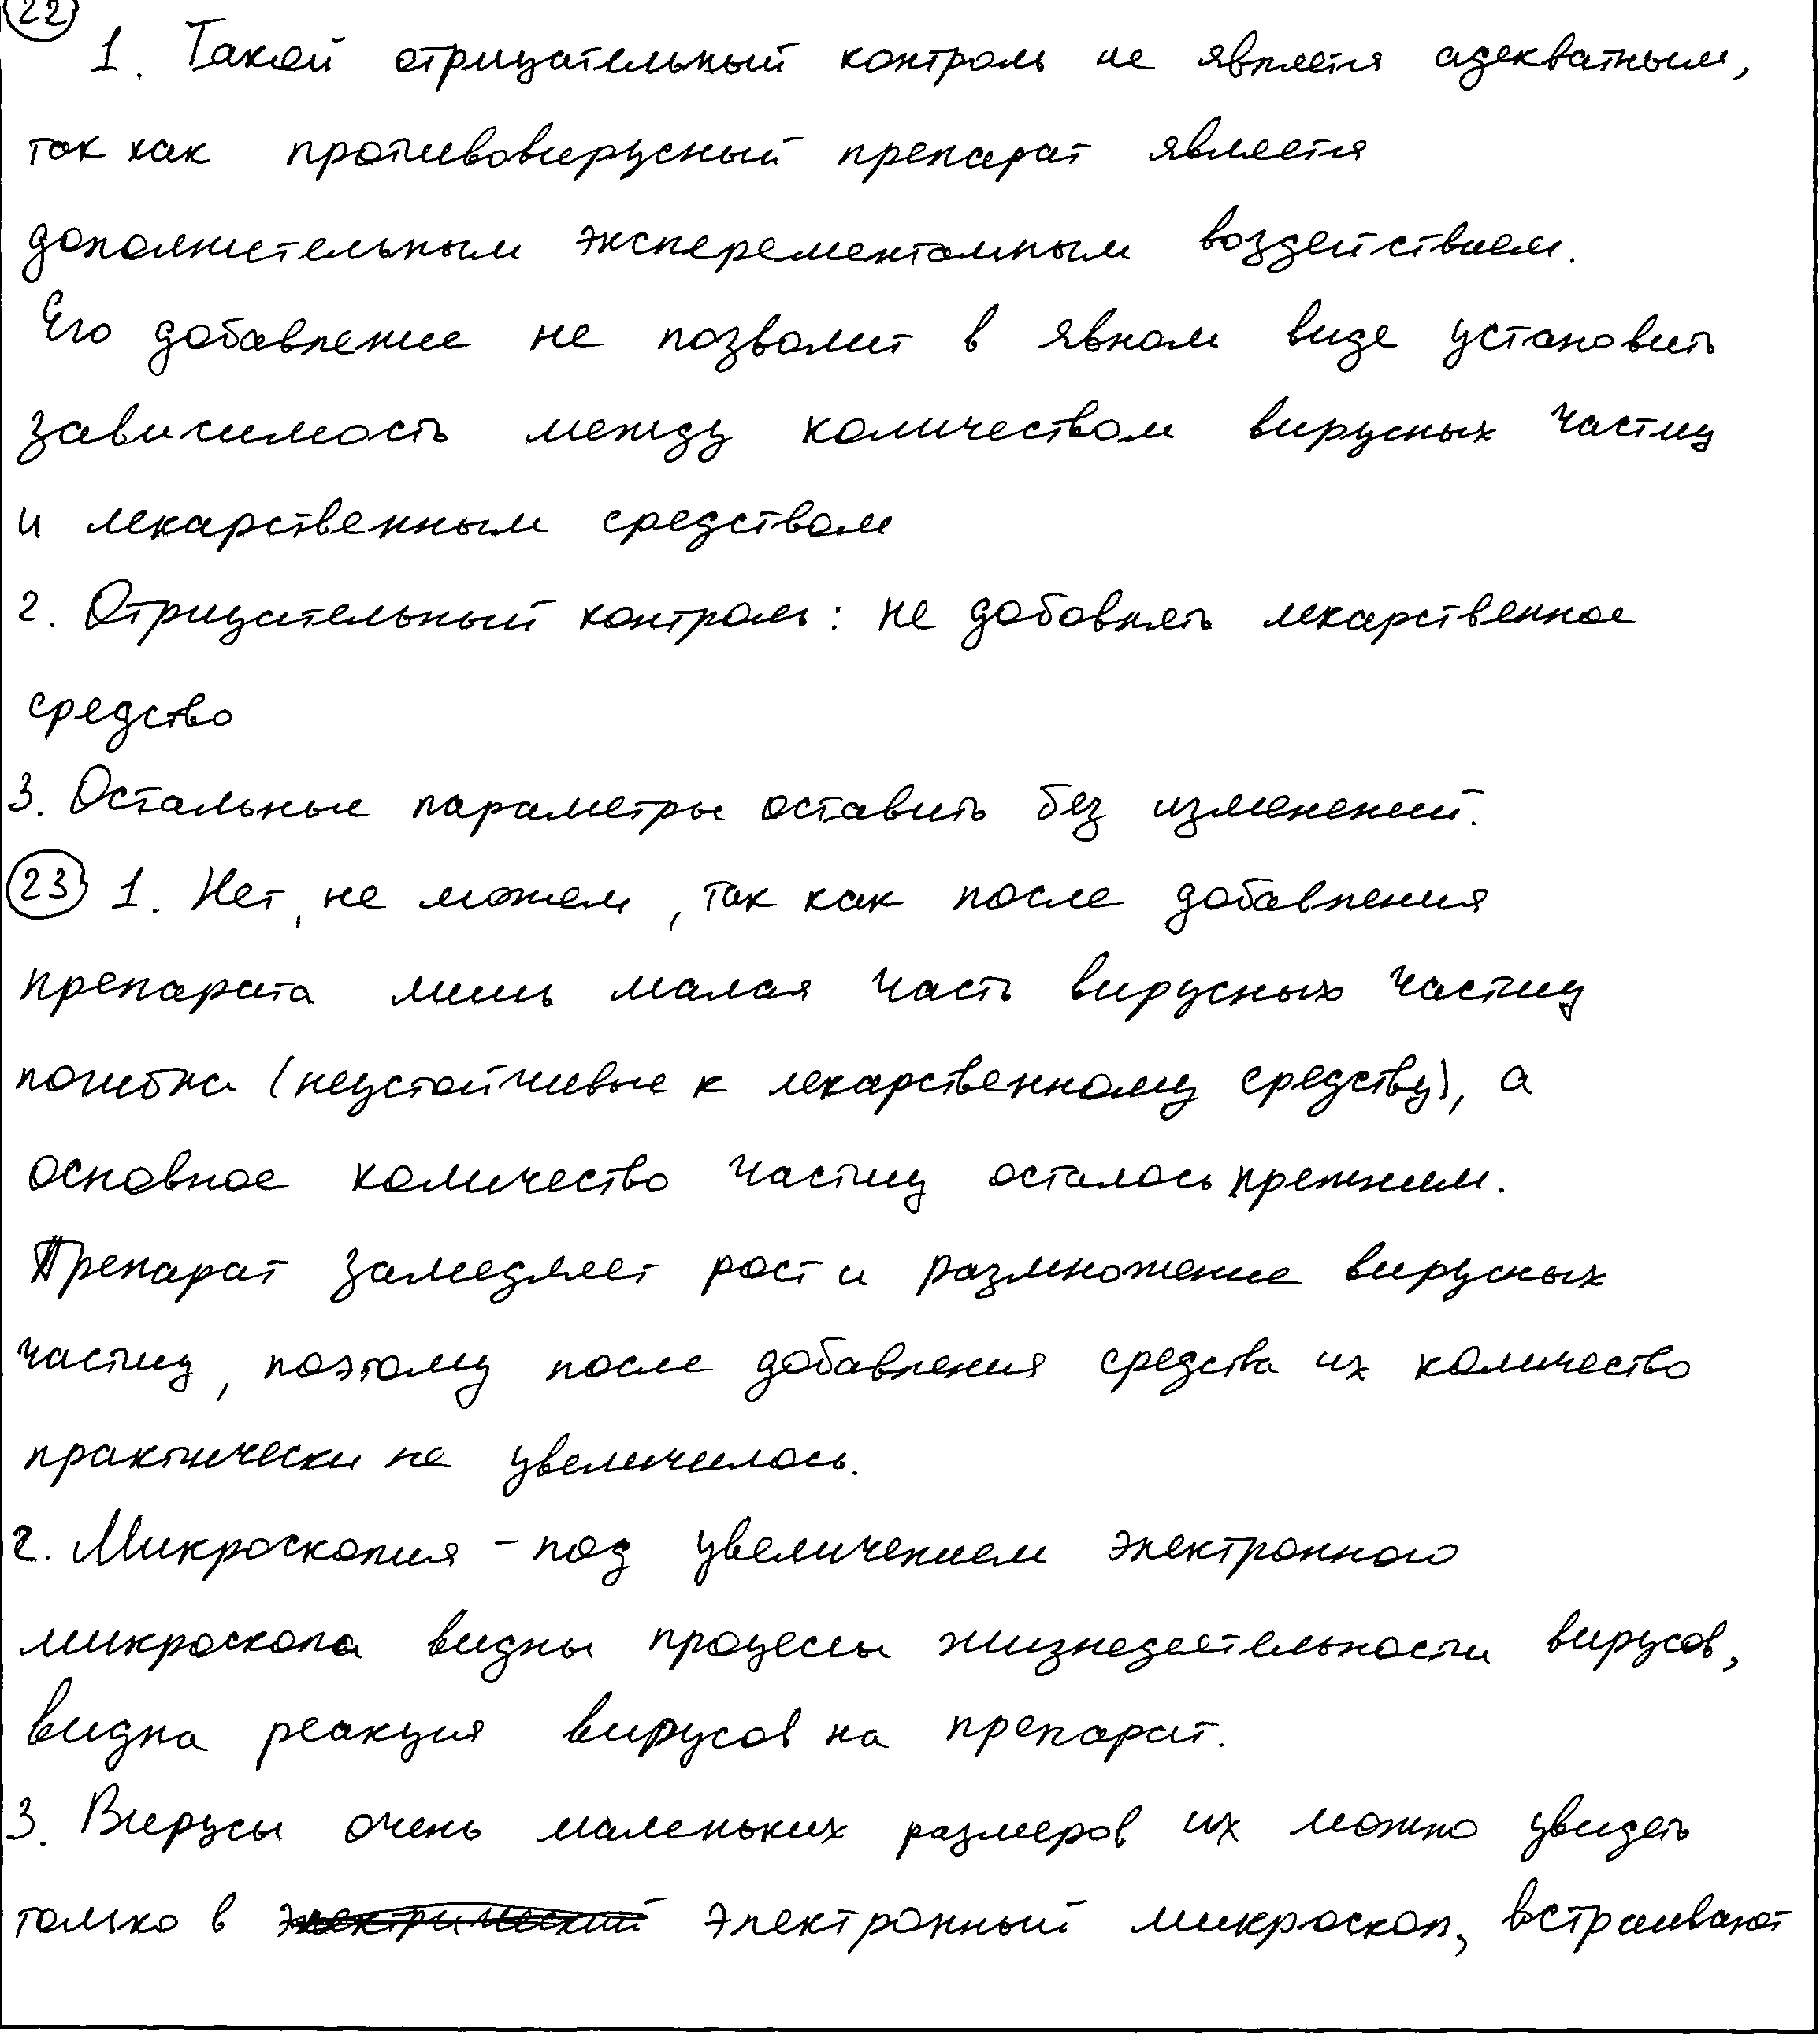 22
1. Такой отрицательный контроль не является адекватным,
так как противовирусный препарат является
дополнительным эксперементальным воздействием.
Его добавление не позволит в явном виде установить
зависимость между количеством вирусных частиц
и лекарственным средством
2. Отрицательный контроль: не добавлять лекарственное
средство
3. Остальные параметры оставить без изменений.
23 1. Нет, не можем, так как после добавления
препарата лишь малая часть вирусных частиц
погибла (неустойчивые к лекарственному средству), а
основное количество частиц осталось прежним.
Препарат замедляет рост и размножение вирусных
частиц, поэтому после добавления средства их количество
практически не увеличилось.
2. Микроскопия - под увеличением электронного
микроскопа видны процессы жизнедеятельности вирусов,
видна реакция вирусов на препарат.
3. Вирусы очень маленьких размеров их можно увидеть
только в электрический электронный микроскоп, встраивают